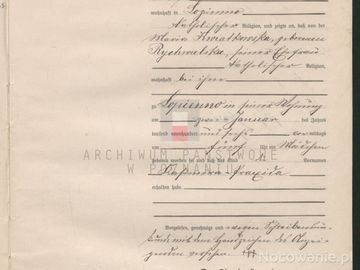 wohnhaft in Lopienno
katholischer Religion, und zeigte an, daß von der
Maria Kwiatkowska, geborenen
Rychwalska, seiner Ehefrau
katholischer Religion,
wohnhaft bei ihm
zu Lopienno in seiner Wohnung
am Januar des Jahres
tausend neunhundert und sechs vormittags
um fünf Uhr ein Mädchen
geboren worden sei und daß das Kind Vornamen
Praxida
erhalten habe
Vorgelesen, genehmigt und wegen Schreibens
kunde mit dem Handzeichen des Anzei-
genden versehen +++
ARCHIWUM PAŃSTWOWE
W POZNANIU